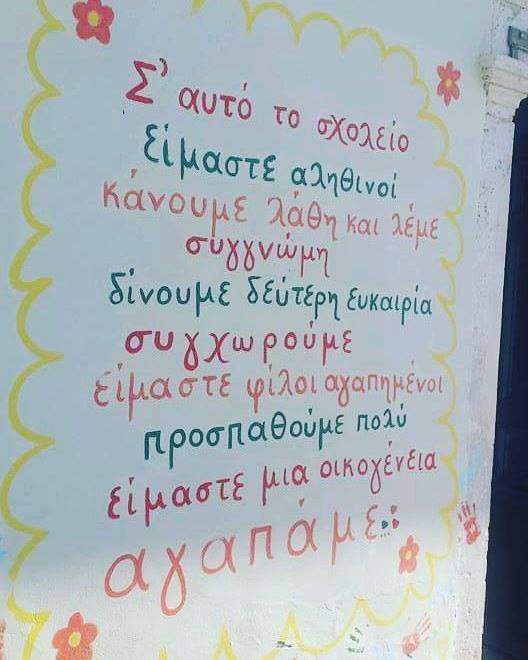 Σ' αυτό το σχολείο
είμαστε αληθινοί
κάνουμε λάθη και λέμε
συγγνώμη
δίνουμε δεύτερη ευκαιρία
συγχωρούμε
είμαστε φίλοι αγαπημένοι
προσπαθούμε πολύ
είμαστε μια οικογένεια
αγαπάμε...